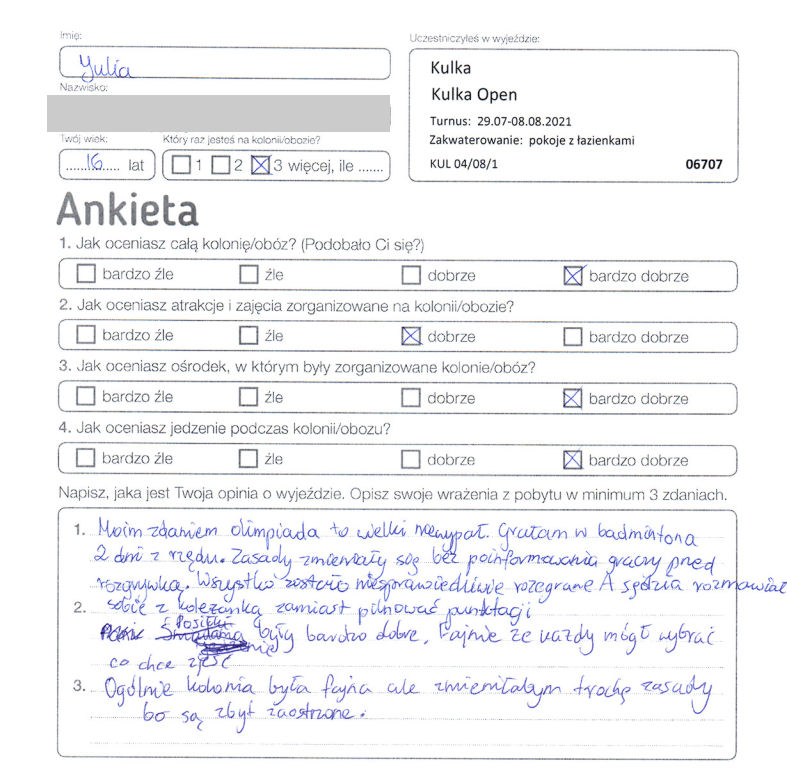 Imię:
Yulia
Nazwisko:
Twój wiek:
16 lat
Który raz jesteś na kolonii/obozie?
1 2 3 więcej, ile .......
Uczestniczyłeś w wyjeździe:
Kulka
Kulka Open
Turnus: 29.07-08.08.2021
Zakwaterowanie: pokoje z łazienkami
KUL 04/08/1 06707
Ankieta
1. Jak oceniasz całą kolonię/obóz? (Podobało Ci się?)
bardzo źle źle dobrze bardzo dobrze
2. Jak oceniasz atrakcje i zajęcia zorganizowane na kolonii/obozie?
bardzo źle źle dobrze bardzo dobrze
3. Jak oceniasz ośrodek, w którym były zorganizowane kolonie/obóz?
bardzo źle źle dobrze bardzo dobrze
4. Jak oceniasz jedzenie podczas kolonii/obozu?
bardzo źle źle dobrze bardzo dobrze
Napisz, jaka jest Twoja opinia o wyjeździe. Opisz swoje wrażenia z pobytu w minimum 3 zdaniach.
1. Moim zdaniem olimpiada to wielki niewypał. Grałam w badmintona
2 dni z rzędu. Zasady zmieniały się bez poinformowania graczy przed
rozgrywką. Wszystko zostało niesprawiedliwie rozegrane A sędzia rozmawiał
sobie z koleżanką zamiast pilnować punktacji
2. Posiłki były bardzo dobre, Fajnie że każdy mógł wybrać
co chce zjeść
3. Ogólnie kolonia była fajna ale zmieniłabym trochę zasady
bo są zbyt zaostrzone.